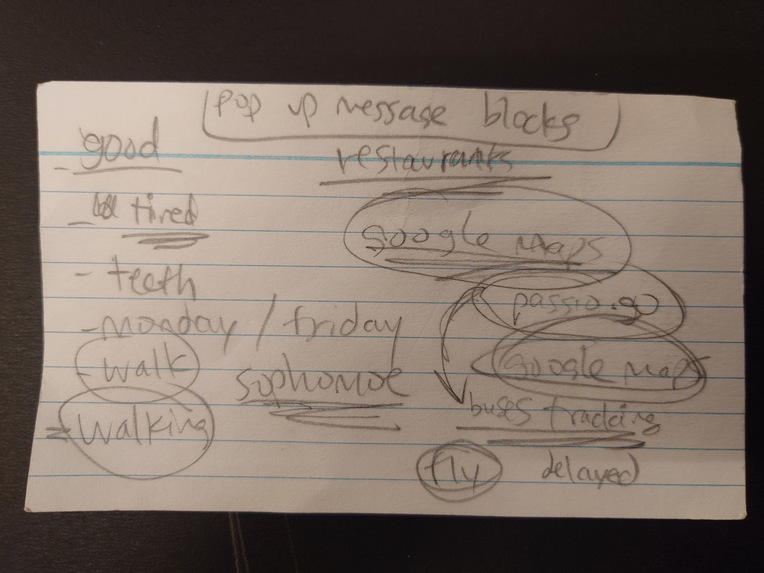 pop up message blocks
- good
restaurants
- tired
google maps
- teeth
passio.go
- monday / friday
- walk
google maps
sophomoe
buses tracking
- walking
fly
delayed